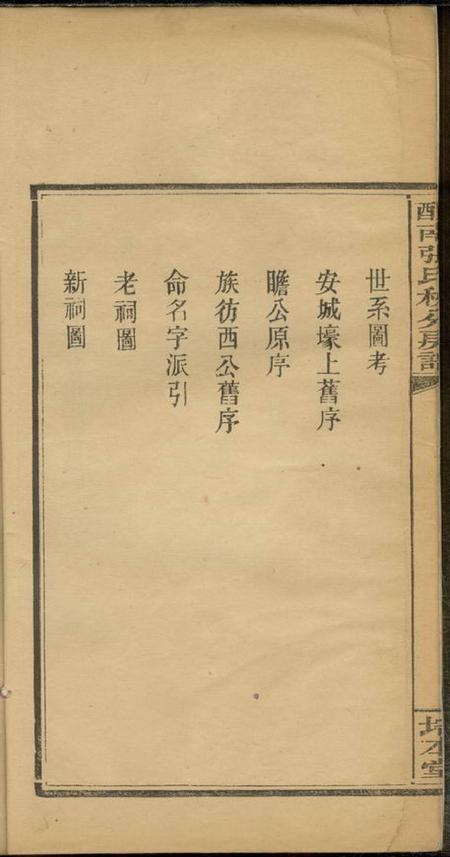 世系圖考
安城壕上舊序
瞻公原序
族彷西公舊序
命名字派引
老祠圖
新祠圖
南張氏
堂